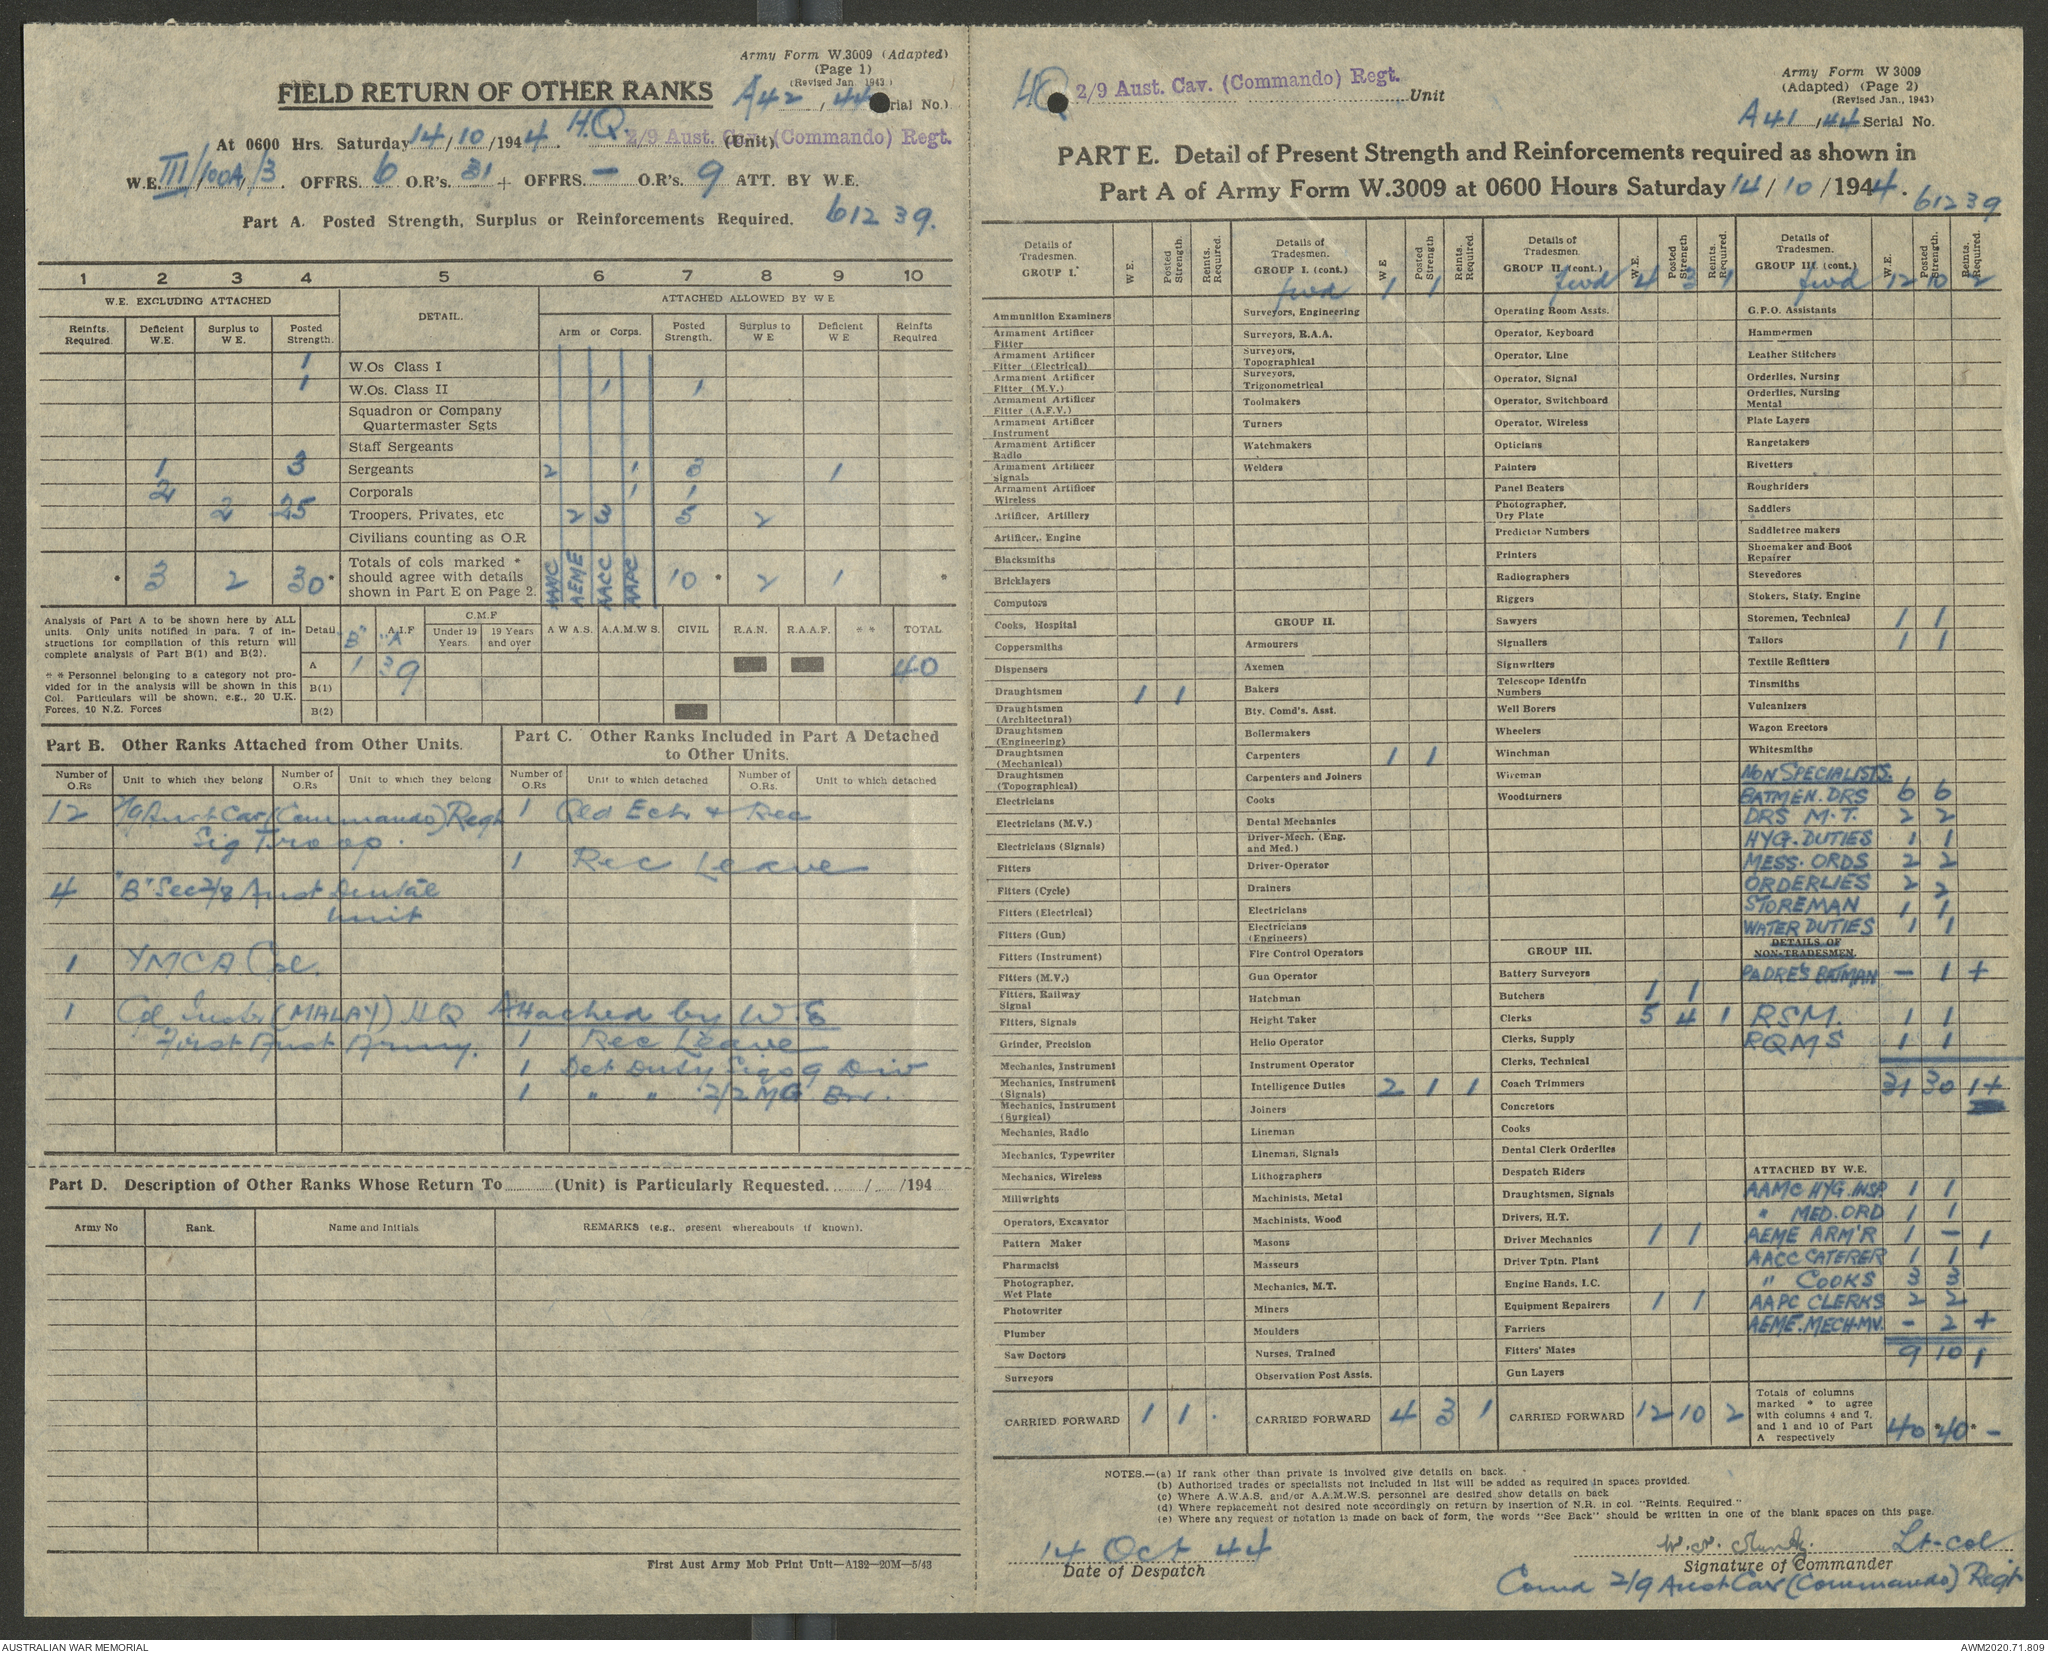 Army Form W.3009 (Adapted)
(Page 1)
(Revised Jan. 1943)
FIELD RETURN OF OTHER RANKS
A42 / 44 rial No.)
At 0600 Hrs. Saturday 14/10/1944. H.Q. 2/9 Aust. Cav. (Commando) Regt. (Unit)
W.E. III/100A/3. OFFRS. 6 O.R's. 31 + OFFRS. — O.R's. 9 ATT. BY W.E.
Part A. Posted Strength, Surplus or Reinforcements Required. 61239.
1 2 3 4 5 6 7 8 9 10
W.E. EXCLUDING ATTACHED DETAIL. ATTACHED ALLOWED BY W E
Reinfts. Required. Deficient W.E. Surplus to W E. Posted Strength. Arm or Corps. Posted Strength. Surplus to W E Deficient W E Reinfts Required
1 W.Os Class I
1 W.Os. Class II 1 1
Squadron or Company
Quartermaster Sgts
Staff Sergeants
1 3 Sergeants 2 1 3 1
2 Corporals 1 1
2 25 Troopers, Privates, etc 2 3 5 2
Civilians counting as O.R
* 3 2 30* Totals of cols marked * should agree with details shown in Part E on Page 2. AAMC AEME AACC AAPC 10 * 2 1 *
Analysis of Part A to be shown here by ALL
units. Only units notified in para. 7 of in-
structions for compilation of this return will
complete analysis of Part B(1) and B(2).
* * Personnel belonging to a category not pro-
vided for in the analysis will be shown in this
Col. Particulars will be shown, e.g., 20 U.K.
Forces, 10 N.Z. Forces
Detail "B" A.I.F "A C.M.F Under 19 Years 19 Years and over A W A S. A.A.M.W S. CIVIL R.A.N. R.A.A.F. * * TOTAL
A 1 39 40
B(1)
B(2)
Part B. Other Ranks Attached from Other Units.
Number of O.Rs Unit to which they belong Number of O.Rs Unit to which they belong
12 2/9 Aust Cav (Commando) Regt
Sig Troop.
4 "B" Sec 2/8 Aust Dental
Unit
1 YMCA
1 (MALAY) HQ
First Aust Army.
Part C. Other Ranks Included in Part A Detached
to Other Units.
Number of O.Rs Unit to which detached Number of O.Rs. Unit to which detached
1 Qld Ech & Rec
1 Rec Leave
Attached by W.E
1 Rec Leave
1 Det Duty Sigs 9 Div
1 " " 2/2 MG Bn.
Part D. Description of Other Ranks Whose Return To (Unit) is Particularly Requested. / /194
Army No Rank. Name and Initials REMARKS (e.g., present whereabouts if known).
First Aust Army Mob Print Unit—A132—20M—5/43
HQ 2/9 Aust. Cav. (Commando) Regt. Unit
Army Form W 3009
(Adapted) (Page 2)
(Revised Jan., 1943)
A41 / 44 Serial No.
PART E. Detail of Present Strength and Reinforcements required as shown in
Part A of Army Form W.3009 at 0600 Hours Saturday 14/10/1944.
61239
Details of Tradesmen. GROUP I. W.E. Posted Strength. Reints. Required.
Ammunition Examiners
Armament Artificer Fitter
Armament Artificer Fitter (Electrical)
Armament Artificer Fitter (M.V.)
Armament Artificer Fitter (A.F.V.)
Armament Artificer Instrument
Armament Artificer Radio
Armament Artificer Signals
Armament Artificer Wireless
Artificer, Artillery
Artificer, Engine
Blacksmiths
Bricklayers
Computors
Cooks, Hospital
Coppersmiths
Dispensers
Draughtsmen 1 1
Draughtsmen (Architectural)
Draughtsmen (Engineering)
Draughtsmen (Mechanical)
Draughtsmen (Topographical)
Electricians
Electricians (M.V.)
Electricians (Signals)
Fitters
Fitters (Cycle)
Fitters (Electrical)
Fitters (Gun)
Fitters (Instrument)
Fitters (M.V.)
Fitters, Railway Signal
Fitters, Signals
Grinder, Precision
Mechanics, Instrument
Mechanics, Instrument (Signals)
Mechanics, Instrument (Surgical)
Mechanics, Radio
Mechanics, Typewriter
Mechanics, Wireless
Millwrights
Operators, Excavator
Pattern Maker
Pharmacist
Photographer, Wet Plate
Photowriter
Plumber
Saw Doctors
Surveyors
CARRIED FORWARD 1 1 .
Details of Tradesmen. GROUP I. (cont.) W E Posted Strength Reints. Required.
fwd 1 1
Surveyors, Engineering
Surveyors, R.A.A.
Surveyors, Topographical
Surveyors, Trigonometrical
Toolmakers
Turners
Watchmakers
Welders
GROUP II.
Armourers
Axemen
Bakers
Bty. Comd's. Asst.
Boilermakers
Carpenters 1 1
Carpenters and Joiners
Cooks
Dental Mechanics
Driver-Mech. (Eng. and Med.)
Driver-Operator
Drainers
Electricians
Electricians (Engineers)
Fire Control Operators
Gun Operator
Hatchman
Height Taker
Helio Operator
Instrument Operator
Intelligence Duties 2 1 1
Joiners
Lineman
Lineman, Signals
Lithographers
Machinists, Metal
Machinists, Wood
Masons
Masseurs
Mechanics, M.T.
Miners
Moulders
Nurses, Trained
Observation Post Assts.
CARRIED FORWARD 4 3 1
Details of Tradesmen. GROUP II. (cont.) W.E. Posted Strength Reints. Required.
fwd 4 3 1
Operating Room Assts.
Operator, Keyboard
Operator, Line
Operator, Signal
Operator, Switchboard
Operator, Wireless
Opticians
Painters
Panel Beaters
Photographer, Dry Plate
Predictor Numbers
Printers
Radiographers
Riggers
Sawyers
Signallers
Signwriters
Telescope Identfn Numbers
Well Borers
Wheelers
Winchman
Wireman
Woodturners
GROUP III.
Battery Surveyors
Butchers 1 1
Clerks 5 4 1
Clerks, Supply
Clerks, Technical
Coach Trimmers
Concretors
Cooks
Dental Clerk Orderlies
Despatch Riders
Draughtsmen, Signals
Drivers, H.T.
Driver Mechanics 1 1
Driver Tptn. Plant
Engine Hands, I.C.
Equipment Repairers 1 1
Farriers
Fitters' Mates
Gun Layers
CARRIED FORWARD 12 10 2
Details of Tradesmen. GROUP III. (cont.) W.E. Posted Strength. Reints. Required.
fwd 12 10 2
G.P.O. Assistants
Hammermen
Leather Stitchers
Orderlies, Nursing
Orderlies, Nursing Mental
Plate Layers
Rangetakers
Rivetters
Roughriders
Saddlers
Saddletree makers
Shoemaker and Boot Repairer
Stevedores
Stokers, Staty. Engine
Storemen, Technical 1 1
Tailors 1 1
Textile Refitters
Tinsmiths
Vulcanizers
Wagon Erectors
Whitesmiths
NON SPECIALISTS.
BATMEN. DRS 6 6
DRS M.T. 2 2
HYG. DUTIES 1 1
MESS. ORDS 2 2
ORDERLIES 2 2
STOREMAN 1 1
WATER DUTIES 1 1
DETAILS OF NON-TRADESMEN.
PADRE'S BATMAN — 1 +
RSM. 1 1
RQMS 1 1
31 30 1+
ATTACHED BY W.E.
AAMC HYG. INSP. 1 1
" MED. ORD 1 1
AEME ARM'R 1 — 1
AACC CATERER 1 1
" COOKS 3 3
AAPC CLERKS 2 2
AEME. MECH. MV. — 2 +
9 10 1
Totals of columns marked * to agree with columns 4 and 7, and 1 and 10 of Part A respectively 40 *40 * —
NOTES.—(a) If rank other than private is involved give details on back.
(b) Authorised trades or specialists not included in list will be added as required in spaces provided.
(c) Where A.W.A.S. and/or A.A.M.W.S. personnel are desired show details on back
(d) Where replacement not desired note accordingly on return by insertion of N.R. in col. "Reints. Required."
(e) Where any request or notation is made on back of form, the words "See Back" should be written in one of the blank spaces on this page.
14 Oct 44
Date of Despatch
Lt-col
Signature of Commander
Comd 2/9 Aust Cav (Commando) Regt
AUSTRALIAN WAR MEMORIAL
AWM2020.71.809